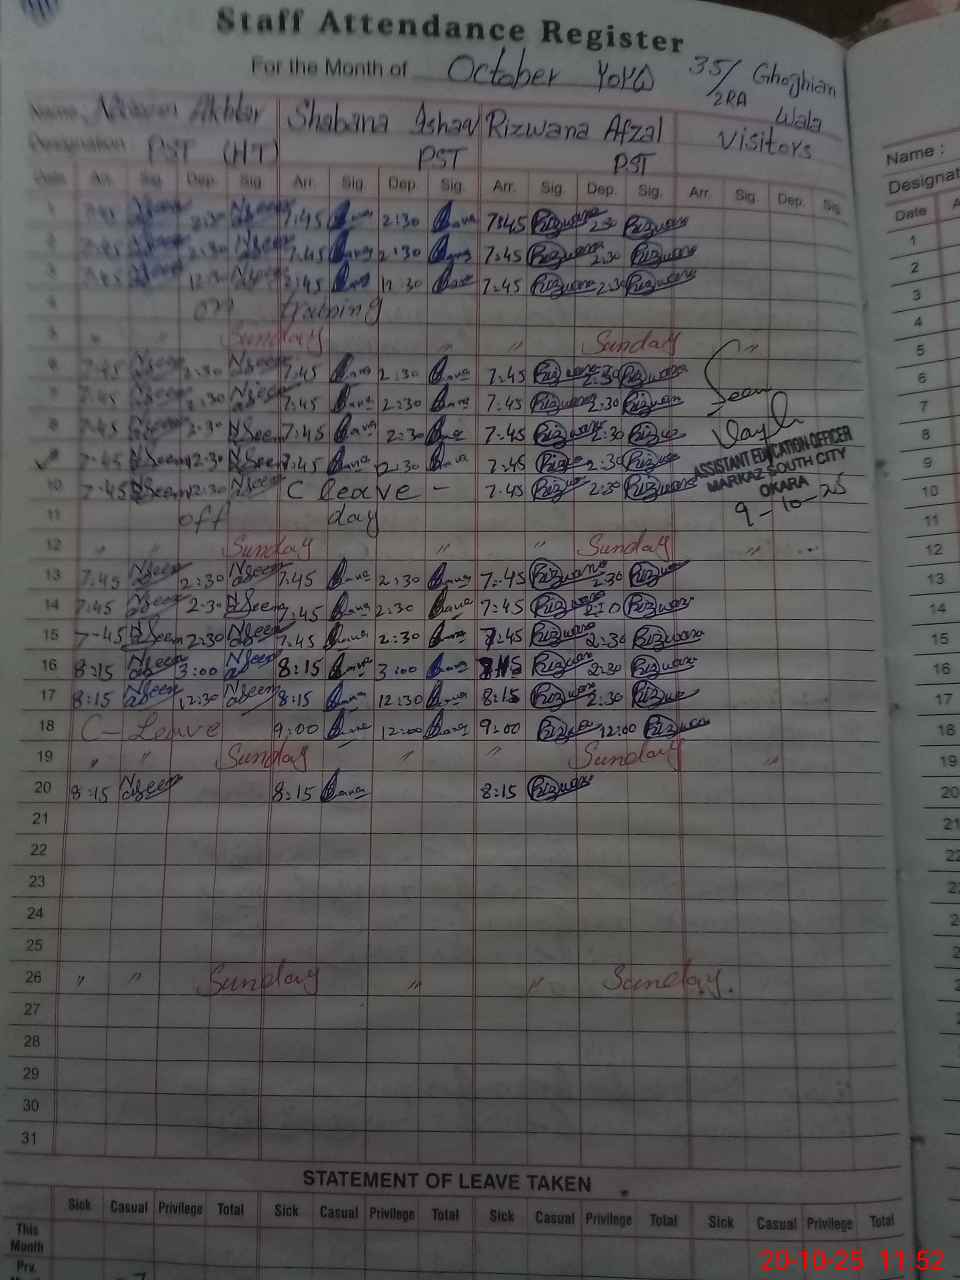 Staff Attendance Register
For the Month of October ۲۰۲۵ 35/2RA Ghoghian Wala
Name: Akhtar Shabana Ishaq Rizwana Afzal Visitors
Designation PST (HT) PST PST
Date Arr. Sig. Dep. Sig. Arr. Sig. Dep. Sig. Arr. Sig. Dep. Sig. Arr. Sig. Dep. Sig.
1 7:45 2:30 7:45 2:30 7:45 Rizwana 2:30 Rizwana
2 7:45 2:30 7:45 2:30 7:45 Rizwana 2:30 Rizwana
3 7:45 12:30 7:45 12:30 7:45 Rizwana 2:30 Rizwana
4 on training
5 " " Sunday " " Sunday "
6 7:45 Nseem 2:30 Nseem 7:45 2:30 7:45 Rizwana 2:30 Rizwana Seen
7 7:45 Nseem 2:30 Nseem 7:45 2:30 7:45 Rizwana 2:30 Rizwana
8 7:45 Nseem 2:30 Nseem 7:45 2:30 7:45 Rizwana 2:30 Rizwana
9 7:45 Nseem 2:30 Nseem 7:45 2:30 7:45 Rizwana 2:30 Rizwana
ASSISTANT EDUCATION OFFICER
MARKAZ SOUTH CITY
OKARA
9-10-25
10 7:45 Nseem 12:30 Nseem C leave - 7:45 Rizwana 2:30 Rizwana
11 off day
12 " " Sunday " " Sunday "
13 7:45 Nseem 2:30 Nseem 7:45 2:30 7:45 Rizwana 2:30 Rizwana
14 7:45 Nseem 2:30 Nseem 7:45 2:30 7:45 Rizwana 2:30 Rizwana
15 7-45 Nseem 2:30 Nseem 7:45 2:30 7:45 Rizwana 2:30 Rizwana
16 8:15 Nseem 3:00 Nseem 8:15 3:00 8:15 Rizwana 2:30 Rizwana
17 8:15 Nseem 12:30 Nseem 8:15 12:30 8:15 Rizwana 2:30 Rizwana
18 C- Leave 9:00 12:00 9:00 Rizwana 12:00 Rizwana
19 " " Sunday " " Sunday "
20 8:15 Nseem 8:15 8:15 Rizwana
21
22
23
24
25
26 " " Sunday " " Sunday.
27
28
29
30
31
STATEMENT OF LEAVE TAKEN
Sick Casual Privilege Total Sick Casual Privilege Total Sick Casual Privilege Total Sick Casual Privilege Total
This Month
Prv.
Name :
Designat
Date A
1
2
3
4
5
6
7
8
9
10
11
12
13
14
15
16
17
18
19
20
21
22
20-10-25 11:52